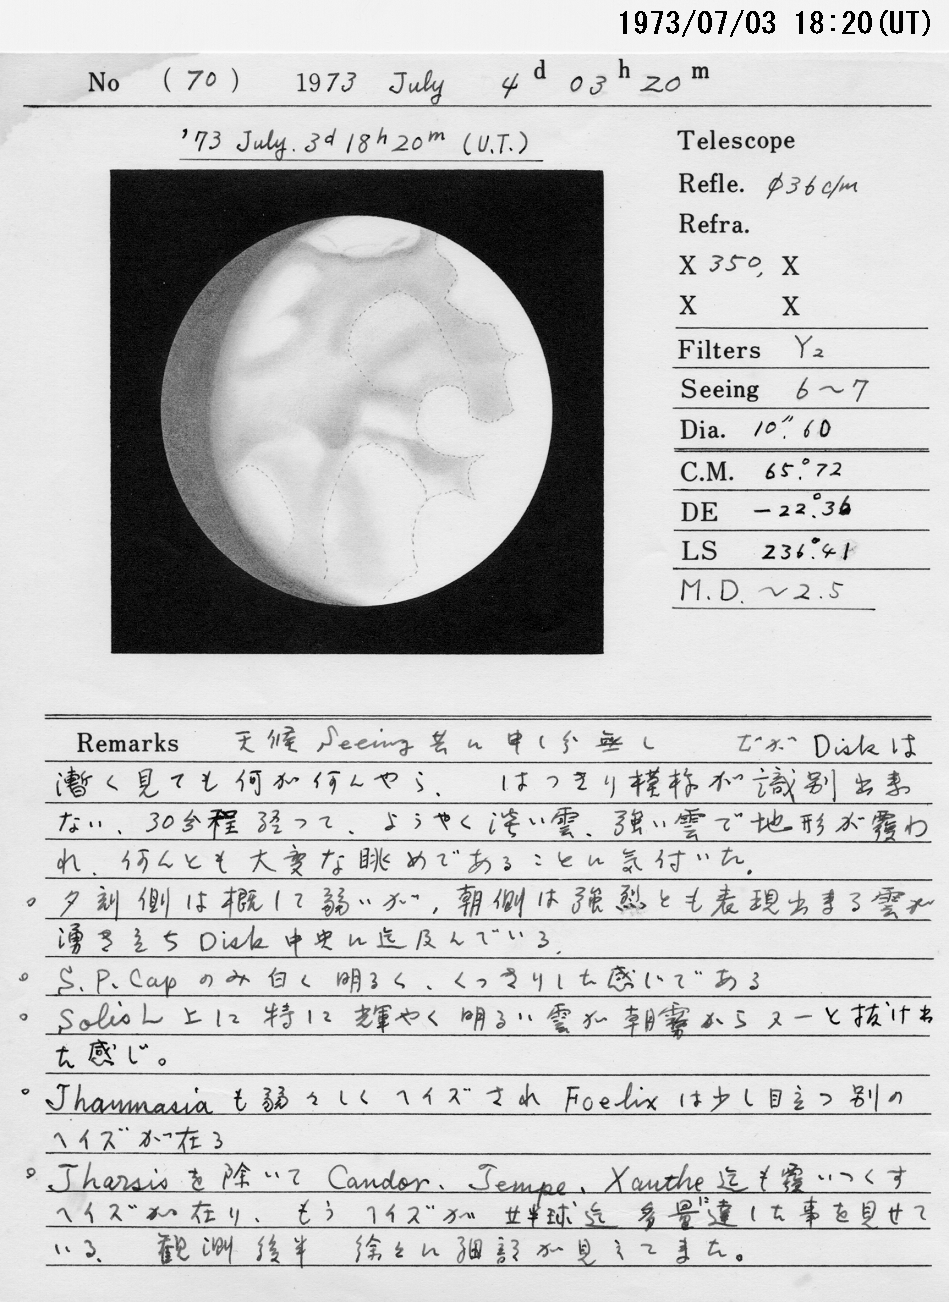 1973/07/03 18:20(UT)
No (70) 1973 July 4d 03h 20m
'73 July. 3d 18h 20m (U.T.)
Telescope
Refle. φ36c/m
Refra.
X 350, X
X X
Filters Y2
Seeing 6～7
Dia. 10".60
C.M. 65°.72
DE －22°.36
LS 236°.41
M.D. ～2.5
Remarks 天候 Seeing 共に申し分無し だが Diskは
漸く見ても何が何んやら、はっきり模様が識別出来
ない、30分程経って、ようやく淡い雲、強い雲で地形が覆わ
れ、何んとも大変な眺めであることに気付いた。
○ 夕刻側は概して弱いが、朝側は強烈とも表現出来る雲が
湧き立ちDisk中央に迄及んでいる。
○ S.P.Capのみ白く明るく、くっきりした感じである
○ Solis L上に特に輝やく明るい雲が朝霧からヌーと抜け出
た感じ。
○ Thaumasiaも弱々しくヘイズされ Foelixは少し目立つ別の
ヘイズが在る
○ Tharsisを除いて Candor、Tempe、Xanthe迄も覆いつくす
ヘイズが在り、もうヘイズが 半球迄 多量に達した事を見せて
いる、観測後半 徐々に細部が見えてきた。